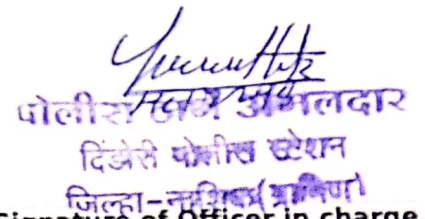 पोलीस ठाणे अंमलदार
दिंडोरी पोलीस स्टेशन
जिल्हा-नाशिक (ग्रामिण)
Signature of Officer in charge